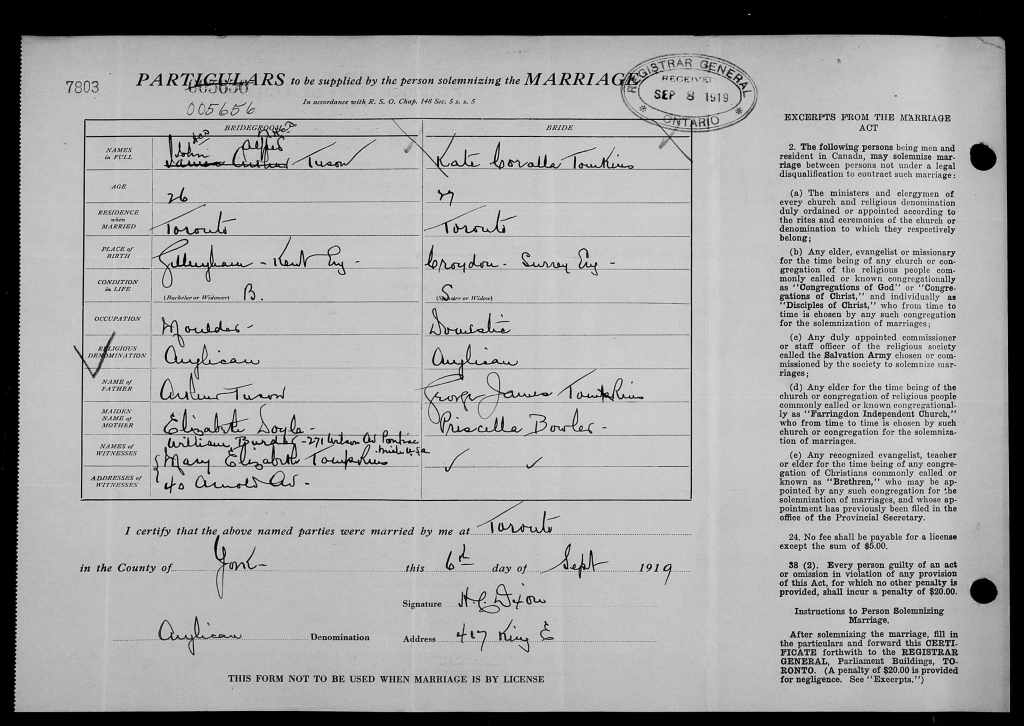 7803
PARTICULARS to be supplied by the person solemnizing the MARRIAGE
005656
005656
In accordance with R. S. O. Chap. 148 Sec. 5 s. s. 5
REGISTRAR GENERAL
RECEIVED
SEP 8 1919
ONTARIO
BRIDEGROOM
BRIDE
NAMES in FULL
John Alfred
James Arthur Tuson
Kate Coralla Tomkins
AGE
26
27
RESIDENCE when MARRIED
Toronto
Toronto
PLACE of BIRTH
Gillingham - Kent Eng -
Croydon - Surrey Eng -
CONDITION in LIFE
(Bachelor or Widower) B.
(Spinster or Widow) S
OCCUPATION
Moulder -
Domestic
RELIGIOUS DENOMINATION
Anglican
Anglican
NAME of FATHER
Arthur Tuson
George James Tompkins
MAIDEN NAME of MOTHER
Elizabeth Doyle -
Priscilla Bowler -
NAMES of WITNESSES
William Burdha - 271 Wilson Av Pontiac
Mich U.S.a
Mary Elizabeth Tompkins
ADDRESSES of WITNESSES
40 Arnold Av -
I certify that the above named parties were married by me at Toronto
in the County of York - this 6th day of Sept 1919
Signature H C Dixon
Anglican Denomination Address 417 King E
THIS FORM NOT TO BE USED WHEN MARRIAGE IS BY LICENSE
EXCERPTS FROM THE MARRIAGE
ACT
2. The following persons being men and
resident in Canada, may solemnize mar-
riage between persons not under a legal
disqualification to contract such marriage:
(a) The ministers and clergymen of
every church and religious denomination
duly ordained or appointed according to
the rites and ceremonies of the church or
denomination to which they respectively
belong;
(b) Any elder, evangelist or missionary
for the time being of any church or con-
gregation of the religious people com-
monly called or known congregationally
as "Congregations of God" or "Congre-
gations of Christ," and individually as
"Disciples of Christ," who from time to
time is chosen by any such congregation
for the solemnization of marriages;
(c) Any duly appointed commissioner
or staff officer of the religious society
called the Salvation Army chosen or com-
missioned by the society to solemnize mar-
riages;
(d) Any elder for the time being of the
church or congregation of religious people
commonly called or known congregational-
ly as "Farringdon Independent Church,"
who from time to time is chosen by such
church or congregation for the solemniza-
tion of marriages.
(e) Any recognized evangelist, teacher
or elder for the time being of any congre-
gation of Christians commonly called or
known as "Brethren," who may be ap-
pointed by any such congregation for the
solemnization of marriages, and whose ap-
pointment has previously been filed in the
office of the Provincial Secretary.
24. No fee shall be payable for a license
except the sum of $5.00.
38 (2). Every person guilty of an act
or omission in violation of any provision
of this Act, for which no other penalty is
provided, shall incur a penalty of $20.00.
Instructions to Person Solemnizing
Marriage.
After solemnizing the marriage, fill in
the particulars and forward this CERTI-
FICATE forthwith to the REGISTRAR
GENERAL, Parliament Buildings, TO-
RONTO. (A penalty of $20.00 is provided
for negligence. See "Excerpts.")